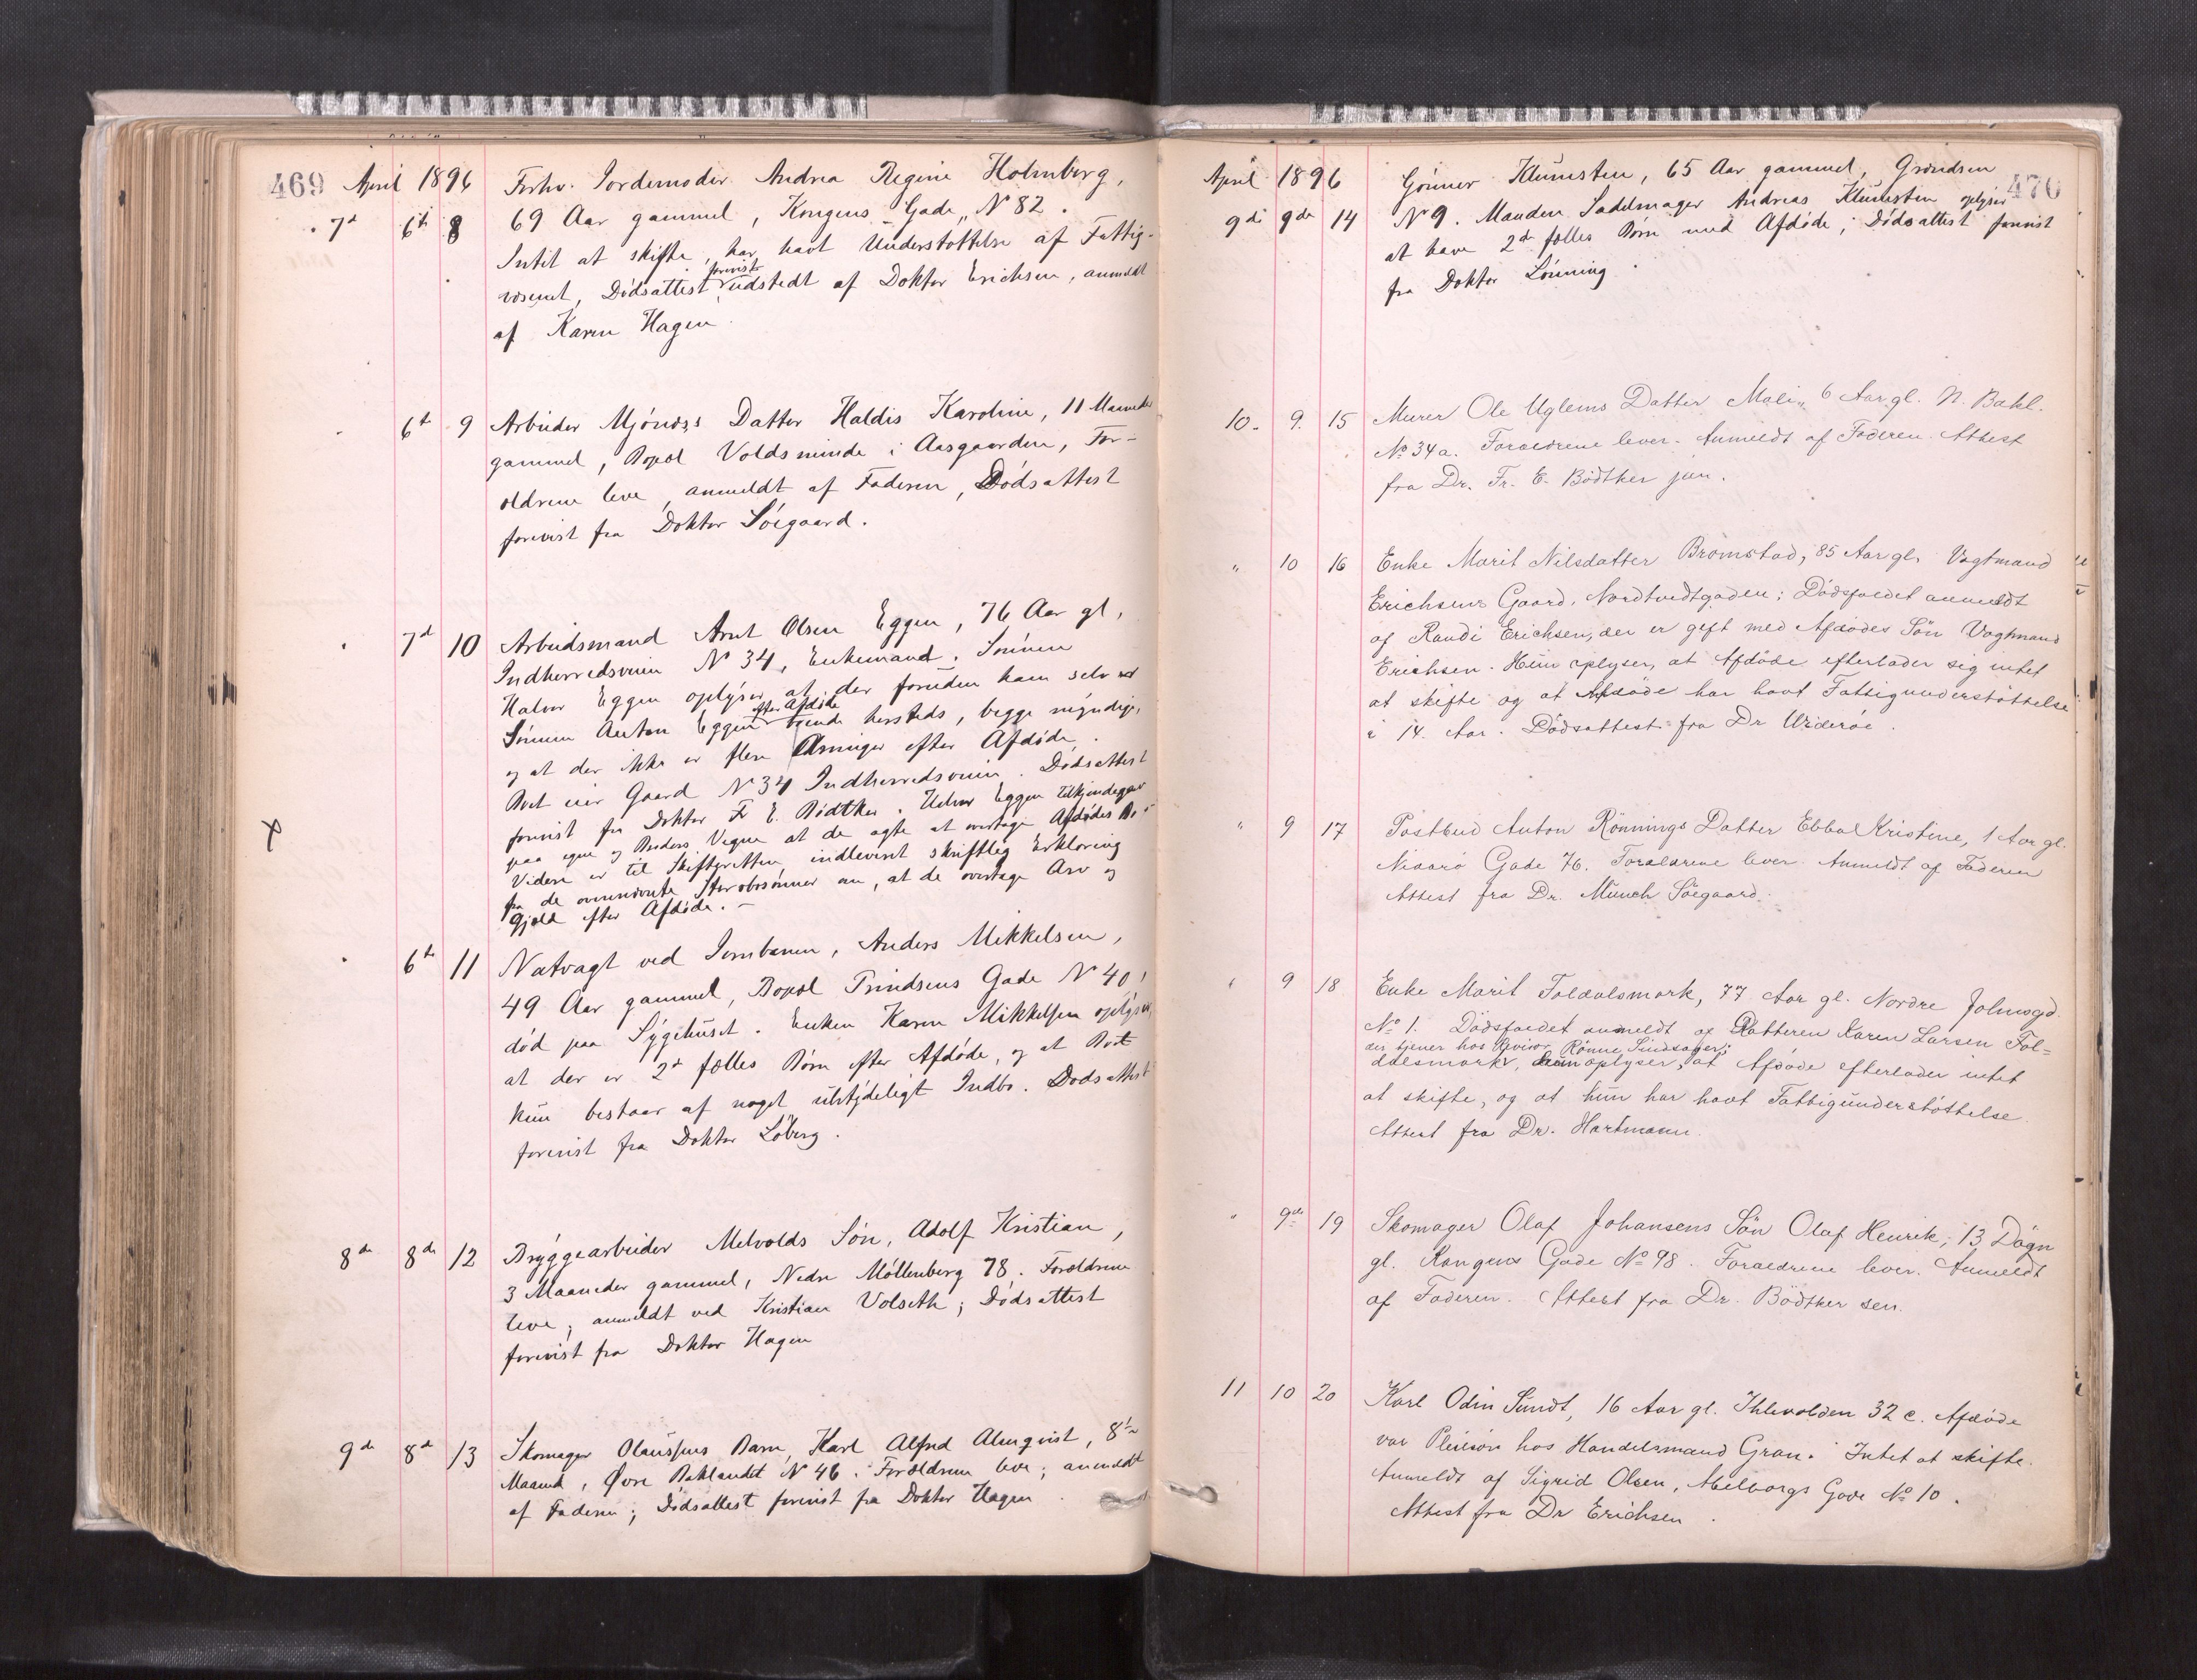 469 April 1896 Forhv. Jordemoder Andrea Regine Holmberg,
7d 6te 8 69 Aar gammel, Kongens Gade, No 82.
Intet at skifte, har havt Understøttelse af Fattig-
væsenet, Dødsattest forevist udstedt af Doktor Erichsen, anmeldt
af Karen Hagen.
6te 9 Arbeider Mjönæs's Datter Haldis Karoline, 11 Maaneder
gammel, Bopæl Voldsminde i Aasgaarden, For-
ældrene leve, anmeldt af Faderen, Dødsattest
forevist fra Doktor Søegaard.
7d 10 Arbeidsmand Arnt Olsen Eggen, 76 Aar gl,
Indherredsveien No 34, Enkemand. Sønnen
Halvor Eggen oplyser at der foruden ham selv er
Sønnen Anton Eggen efter Afdøde boende hersteds, begge myndige,
og at der ikke er flere Arvinger efter Afdøde.
Boet eier Gaard No 34 Indherredsveien. Dødsattest
forevist fra Doktor Fr E. Bødtker. Halvor Eggen tilkjendegav
paa egne og Broders Vegne at de agte at overtage Afdødes Bo.
Videre er til Skifteretten indleveret skriftlig Erklæring
fra de ovennævnte Stervbosønner om, at de overtage Arv og
Gjæld efter Afdøde. -
6te 11 Natvagt ved Jernbanen, Anders Mikkelsen,
49 Aar gammel, Bopæl Trindsens Gade No 40,
död paa Sygehuset. Enken Karen Mikkelsen oplyser,
at der er 2d fælles Børn efter Afdøde, og at Boet
kun bestaar af noget ubetydeligt Indbo. Dødsattest
forevist fra Doktor Løberg.
8de 8de 12 Bryggearbeider Melvolds Søn, Adolf Kristian,
3 Maaneder gammel, Nedre Møllenberg 78. Forældrene
leve; anmeldt ved Kristian Volseth; Dødsattest
forevist fra Doktor Hagen
9de 8de 13 Skomager Olaussens Barn, Karl Alfred Almqvist, 8½
Maaned, Øvre Baklandet No 46. Forældrene leve; anmeldt
af Faderen; Dødsattest forevist fra Doktor Hagen.
April 1896 Gönner Klumsten, 65 Aar gammel, Grændsen 470
9de 9de 14 No 9. Manden Sadelmager Andreas Klumsten oplyser
at have 2d fælles Børn med Afdøde; Dødsattest forevist
fra Doktor Lönning.
10. 9. 15 Murer Ole Uglems Datter Mali, 6 Aar gl. N. Bakl.
No 34a. Forældrene lever. Anmeldt af Faderen. Attest
fra Dr. Fr. E. Bödtker jun.
" 10 16 Enke Marit Nilsdatter Brömstad, 85 Aar gl. Vogtmand
Erichsens Gaard, Nordtvedtgaden; Dödsfaldet anmeldt
af Randi Erichsen, der er gift med Afdödes Sön Vogtmand
Erichsen. Hun oplyser, at Afdöde efterlader sig intet
at skifte og at Afdöde har havt Fattigunderstöttelse
i 14 Aar. Dödsattest fra Dr Wideröe.
" 9 17 Postbud Anton Rönnings Datter Ebba Kristine, 1 Aar gl.
Nidarö Gade 76. Forældrene lever. Anmeldt af Faderen
Attest fra Dr. Münch Söegaard.
" 9 18 Enke Marit Foldalsmark, 77 Aar gl. Nordre Jolmsgd.
No 1. Dödsfaldet anmeldt af Datteren Karen Larsen Fol-
der tjener hos Revisor Rönne Sindsager;
dalsmark, hun oplyser, at Afdöde efterlader intet
at skifte, og at hun har havt Fattigunderstöttelse.
Attest fra Dr. Hartmann.
" 9de 19 Skomager Olaf Johansens Sön Olaf Henrik, 13 Dögn
gl. Kongens Gade No 98. Forældrene lever. Anmeldt
af Faderen. Attest fra Dr. Bödtker sen.
11 10 20 Karl Odin Sundt, 16 Aar gl. Ihlevolden 32 c. Afdöde
var Pleiesön hos Handelsmand Gran. Intet at skifte.
Anmeldt af Sigrid Olsen, Mellborgs Gade No 10.
Attest fra Dr Erichsen.